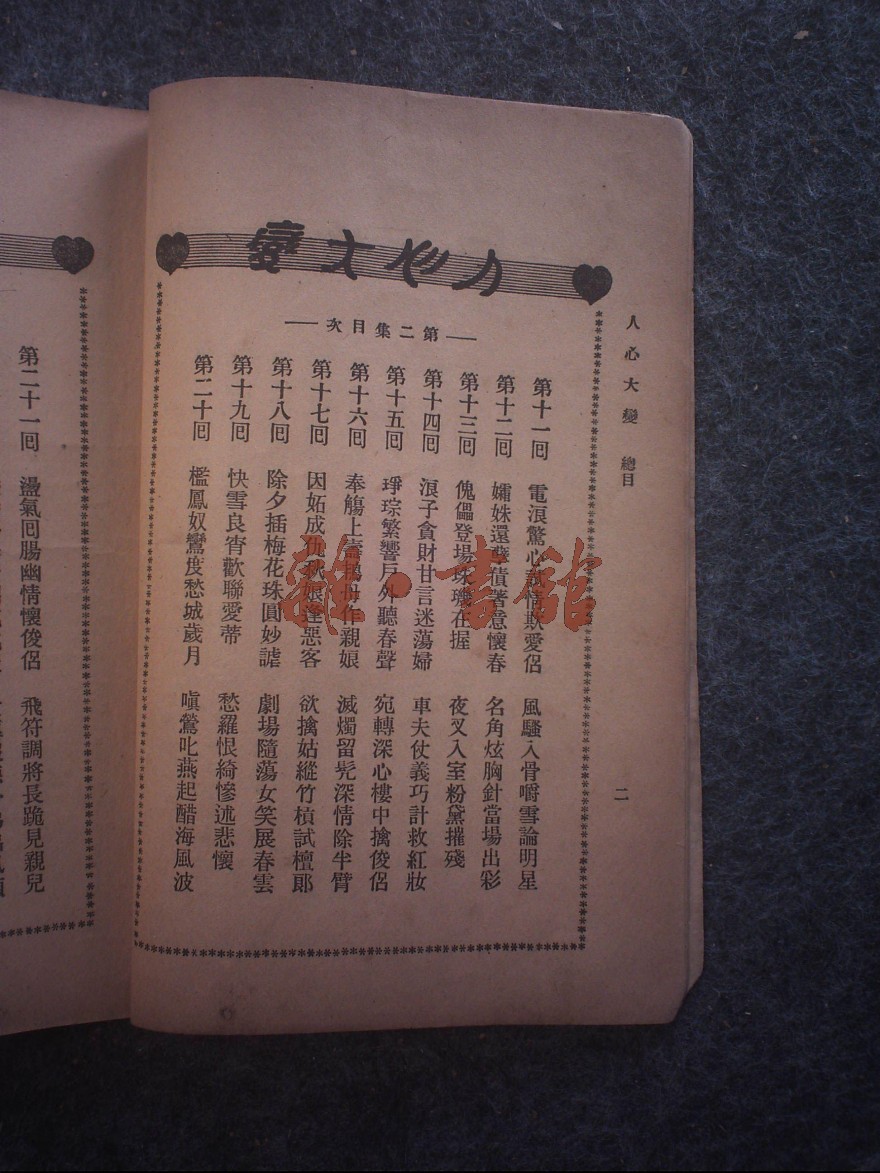 人心大變 總目
二
人心大變
第二集目次
第十一回 電浪驚心 情欺愛侶 風騷入骨嚼雪論明星
第十二回 孀姝還 債著意懷春 名角炫胸針當場出彩
第十三回 傀儡登場珠璣在握 夜叉入室粉黛摧殘
第十四回 浪子貪財甘言迷蕩婦 車夫仗義巧計救紅妝
第十五回 琤琮繁響戶外聽春聲 滅燭留髡深情除半臂
第十六回 奉觴上壽鴇母作親娘 宛轉深心樓中擒俊侶
第十七回 因妬成仇秋娘逢惡客 欲擒姑縱竹槓試檀郎
第十八回 除夕插梅花珠圓妙謔 劇場隨蕩女笑展春雲
第十九回 快雪良宵歡聯愛蒂 愁羅恨綺慘述悲懷
第二十回 檻鳳奴鸞度愁城歲月 嗔鶯叱燕起醋海風波
第二十一回 盪氣回腸幽情懷俊侶 飛符調將長跪見親兒
雜·書館